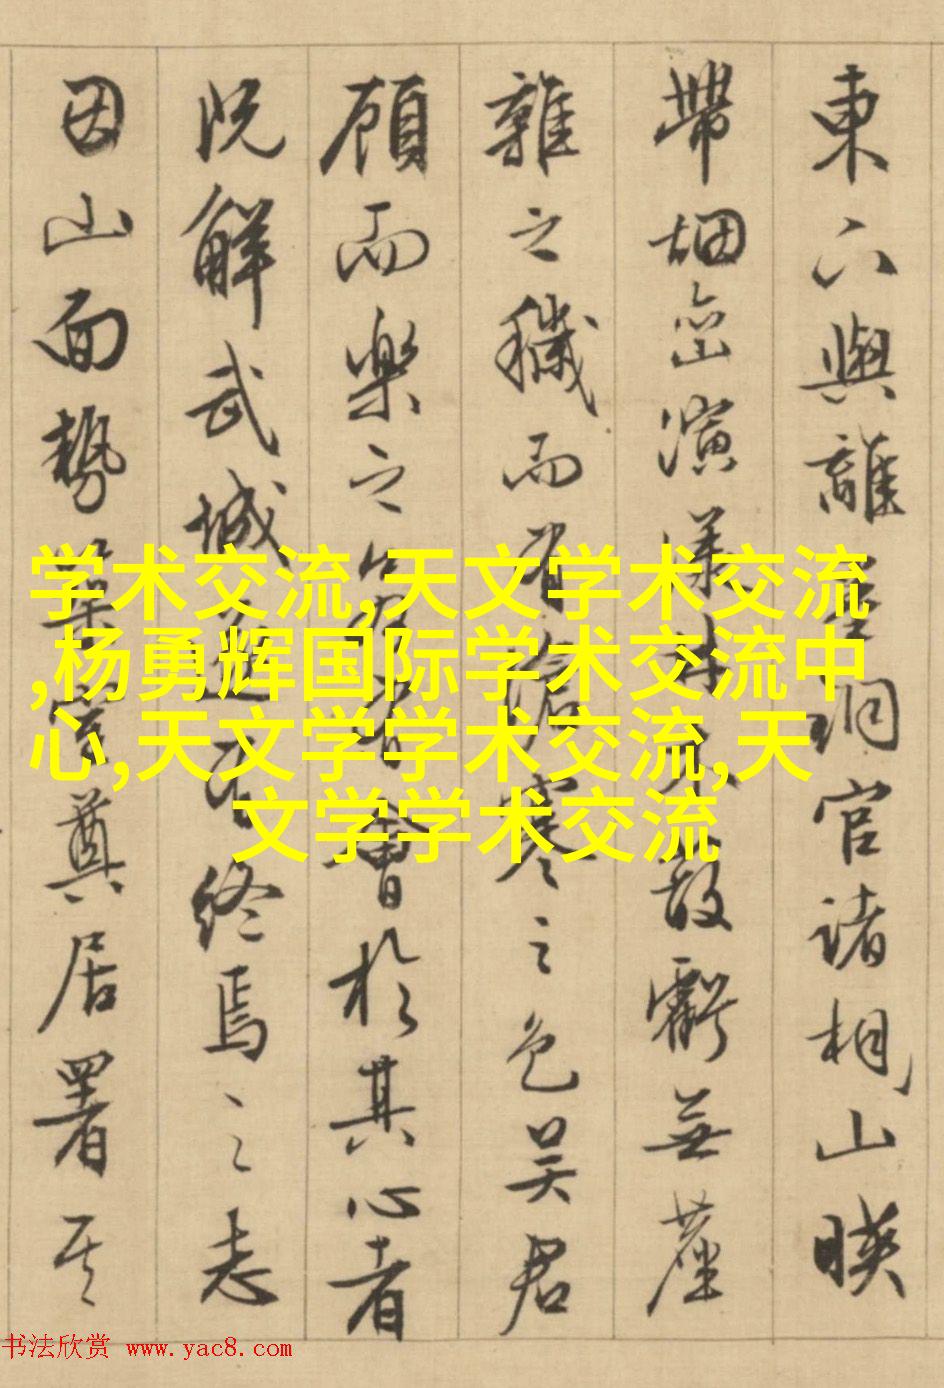 東六與離墨洞官諸相山暎
帶烟巒演漾林水故霸無塵
雜之穢而有 寒之色吴君
顧而樂之 會於其心者
既解武城 終焉之志
因山面勢築室奠居署其
学术交流,天文学术交流
,杨勇辉国际学术交流中
心,天文学学术交流,天
文学学术交流
书法欣赏 www.yac8.com